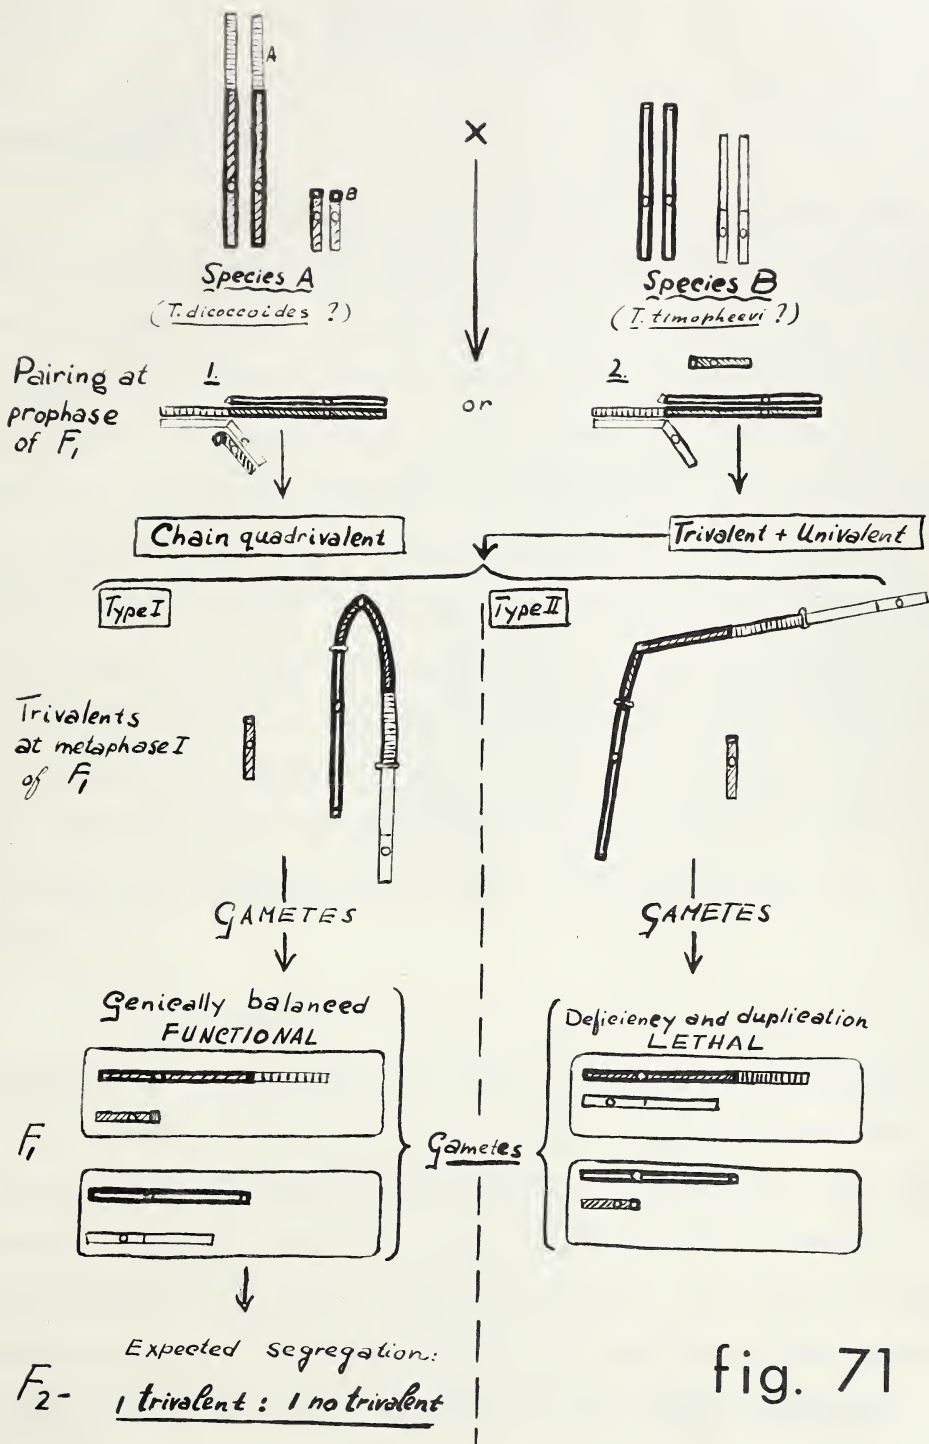 A
B
X
Species A
(T. dicoccoides ?)
Species B
(T. timopheevi ?)
Pairing at
prophase
of F1
1.
or
2.
Chain quadrivalent
Trivalent + Univalent
Type I
Type II
Trivalents
at metaphase I
of F1
GAMETES
GAMETES
Genically balanced
FUNCTIONAL
Deficiency and duplication
LETHAL
F1
Gametes
Expected segregation:
F2- 1 trivalent : 1 no trivalent
fig. 71